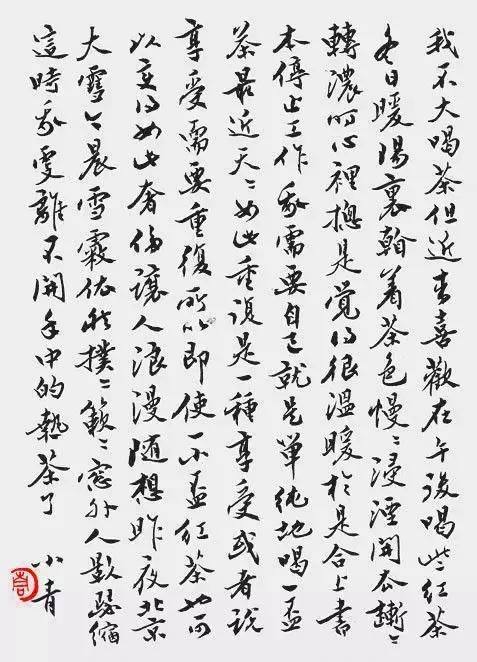 我不大喝茶但近來喜歡在午後喝些紅茶
冬日暖陽裏着茶色慢〻浸湮開來漸〻
轉濃時心裡總是覺得很溫暖於是合上書
本停止工作我需要自己就是單純地喝一盃
茶最近天〻如此重復是一種享受或者說
享受需要重復所以即使一小盃紅茶也可
以變得如此奢侈讓人浪漫隨想昨夜北京
大雪今晨雪霰依然撲〻簌〻窗外人影瑟縮
這時我更離不開手中的熱茶了
小青